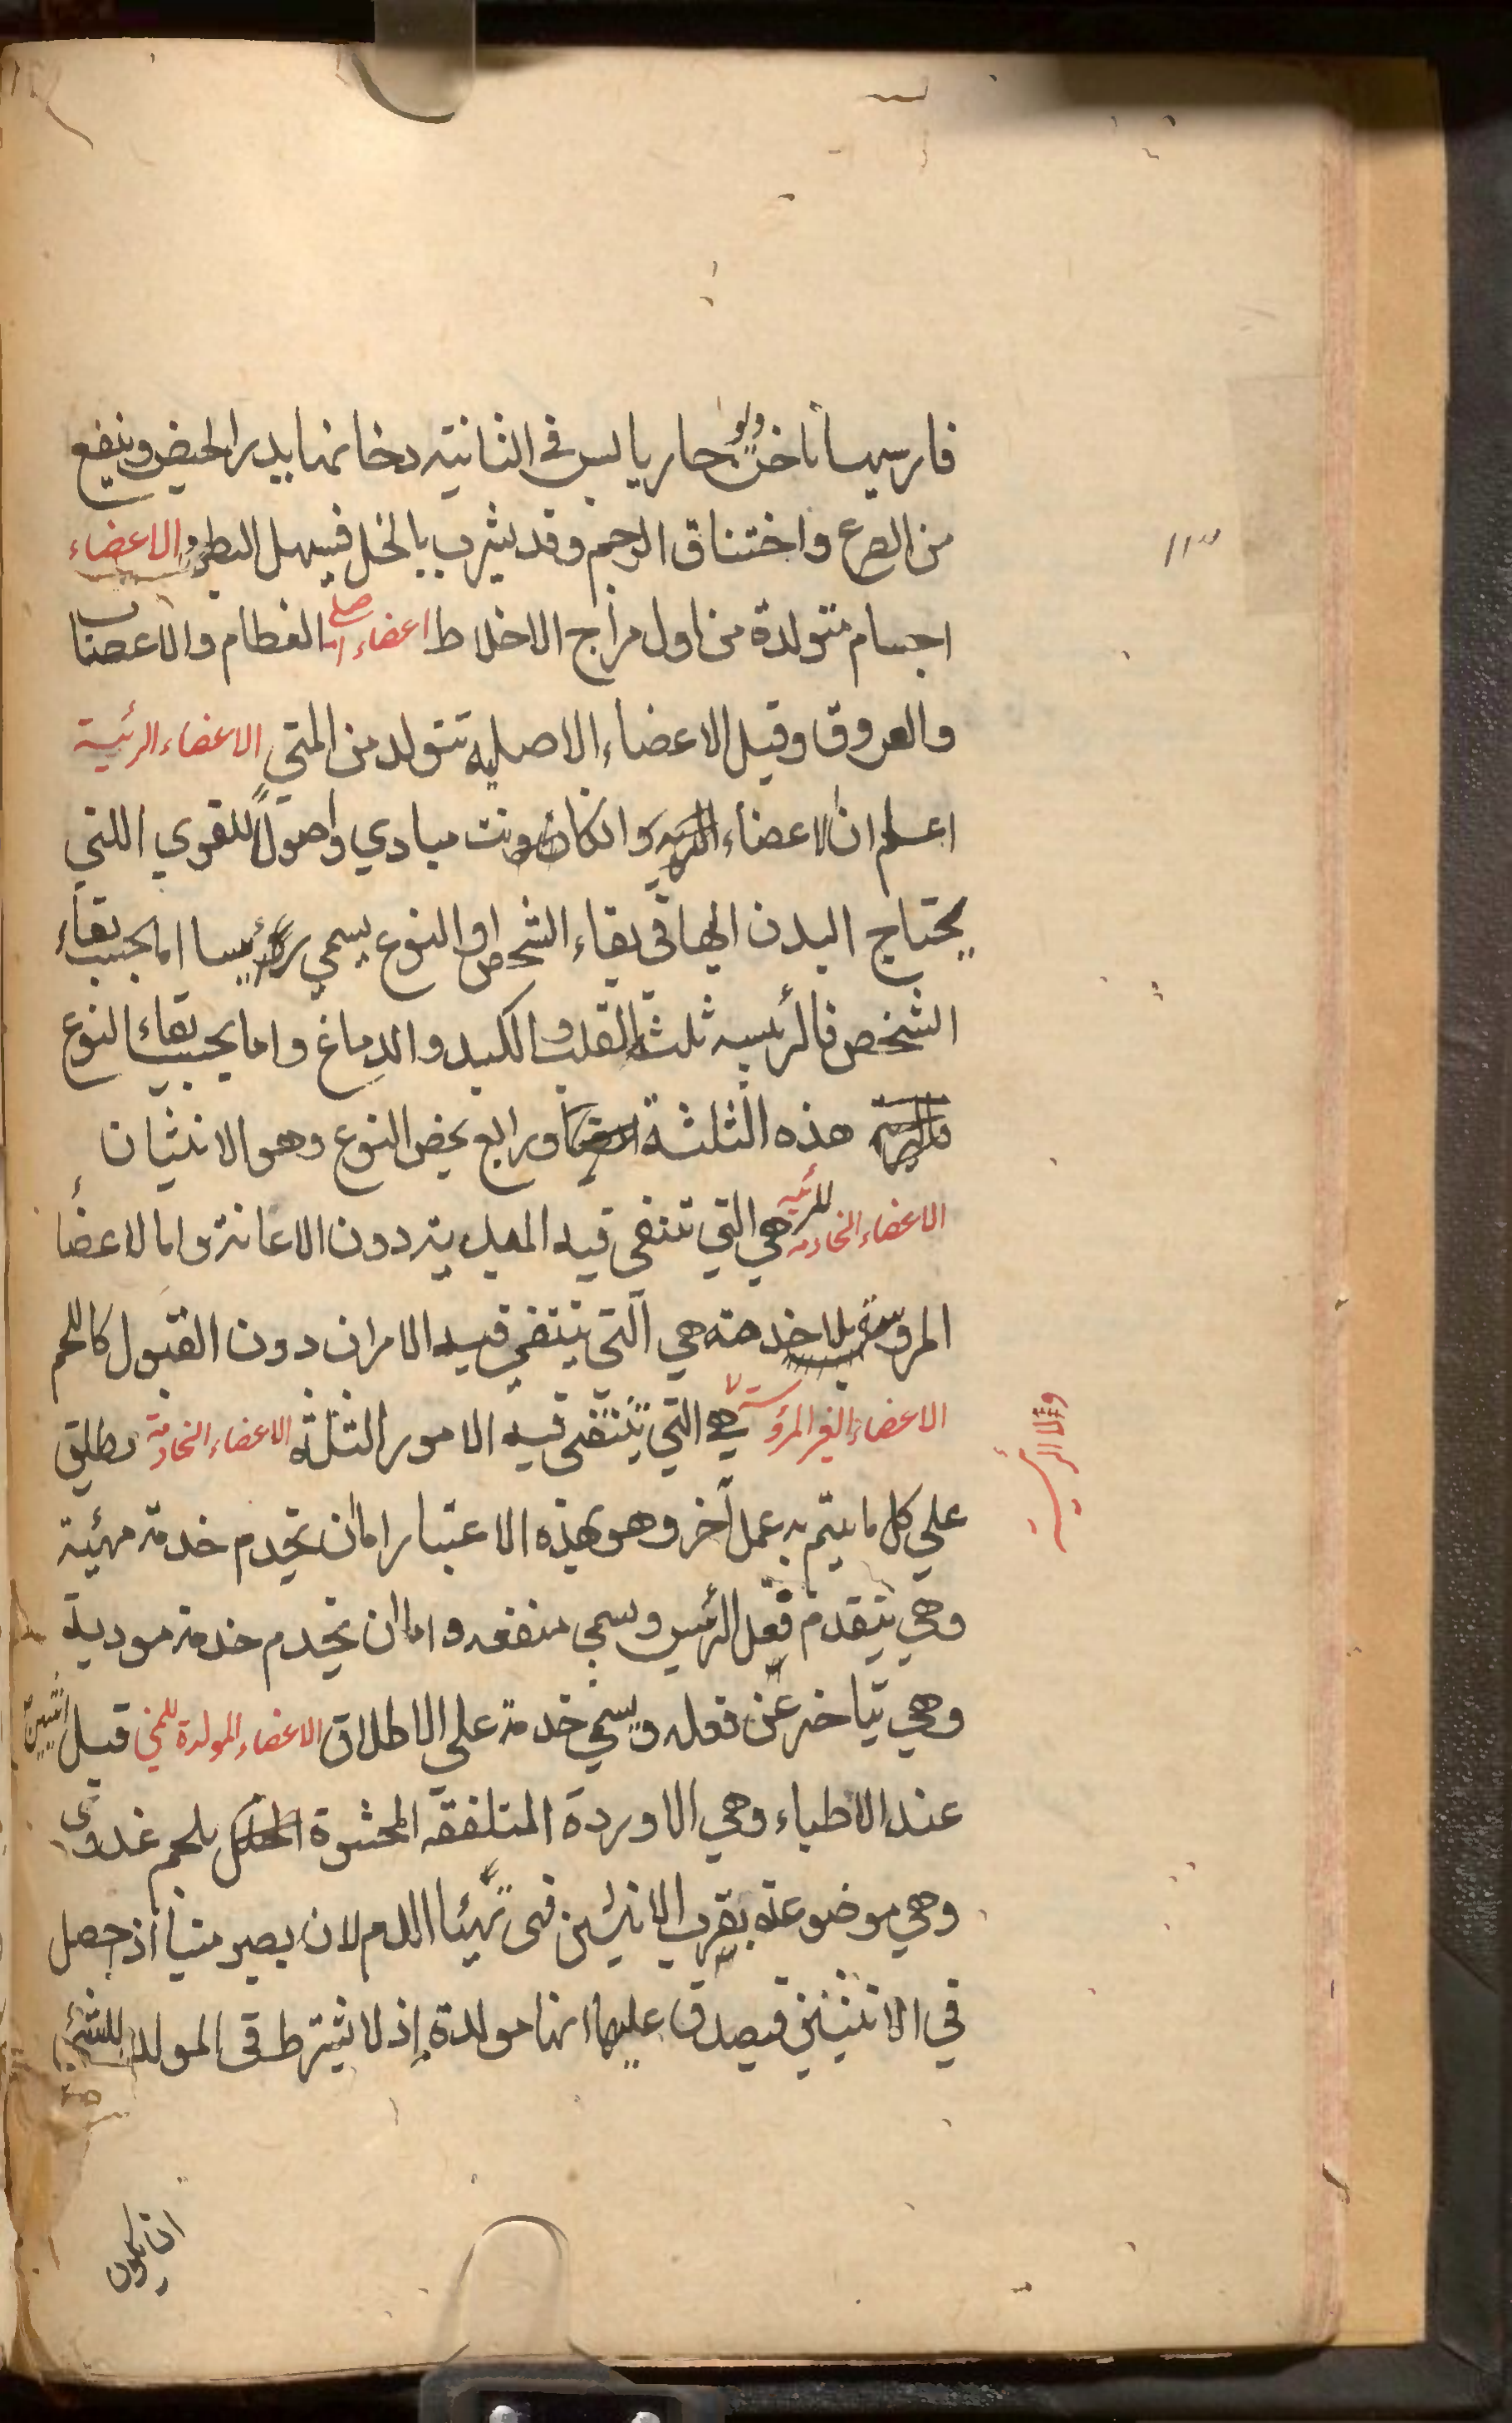 فارسيها ناخن ديو حار يابس في الثانية دخانها يدر الحيض وينفع
من الصرع واختناق الرحم وقد يشرب بالخل فيسهل البطن الاعضاء
اجسام متولدة من اول مزاج الاخلاط اعضاء اصلي العظام والاعصاب
والعروق وقيل الاعضاء الاصلية تتولد من المني الاعضاء الرئيسة
اعلم ان الاعضاء وان كانت مبادي واصولاً للقوي اللتي
يحتاج البدن اليها في بقاء الشخص او النوع يسمي رئيسا اما بحسب بقاء
الشخص فالرئيسه ثلثة القلب والكبد والدماغ واما بحسب بقاء النوع
هذه الثلثة ورابع يخص النوع وهو الانثيان
الاعضاء الخادمه للرئيسه هي التي تنتفى فيه دون الاعانة واما الاعضأ
المروسة بلا خدمته هي التي ينتفي فيه الامران دون القبول كاللحم
الاعضاء الغير المرؤسة هي التي ينتفى فيه الامور الثلثه الاعضاء الخادمة تطلق
علي كل ما يتم به عمل آخر وهو بهذه الاعتبار اما ان تخدم خدمة مهئية
وهي يتقدم فعل الرئيس وسمي منفعه واما ان يخدم خدمة مودية
وهي يتاخر عن فعله ويسمي خدمة علي الاطلاق الاعضاء المولدة للمني قيل انثيين
عند الاطباء وهي الاوردة المتلففه المحشوة بلحم غددى
وهي موضوعة بقرب الانثيين فى تهيئا الدم لان يصير منيا اذ حصل
في الانثيين فيصدق عليها انها مولدة إذ لا يشترط فى المولد للشئ
ان يكون